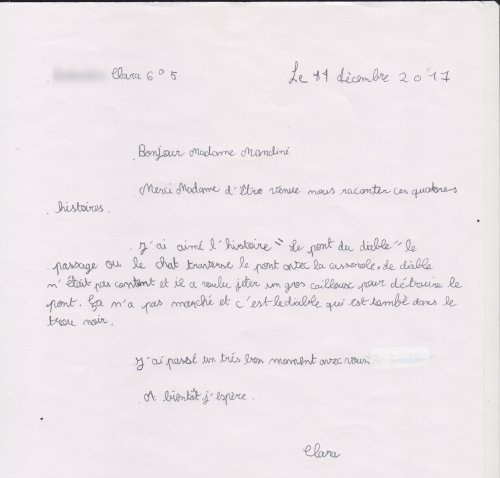 Clara 6° 5
Le 11 décembre 2017
Bonjour Madame Mandini
Merci Madame d'être venue nous raconter ces quatres
histoires.
J'ai aimé l'histoire " le pont du diable " le
passage ou le chat traverse le pont avec la casserole. de diable
n'était pas content et il a voulu jeter un gros cailloux pour détruire le
pont. Ça n'a pas marché et c'est le diable qui est tombé dans le
trou noir.
J'ai passé un trés bon moment avec vous
A bientôt j'espère.
Clara